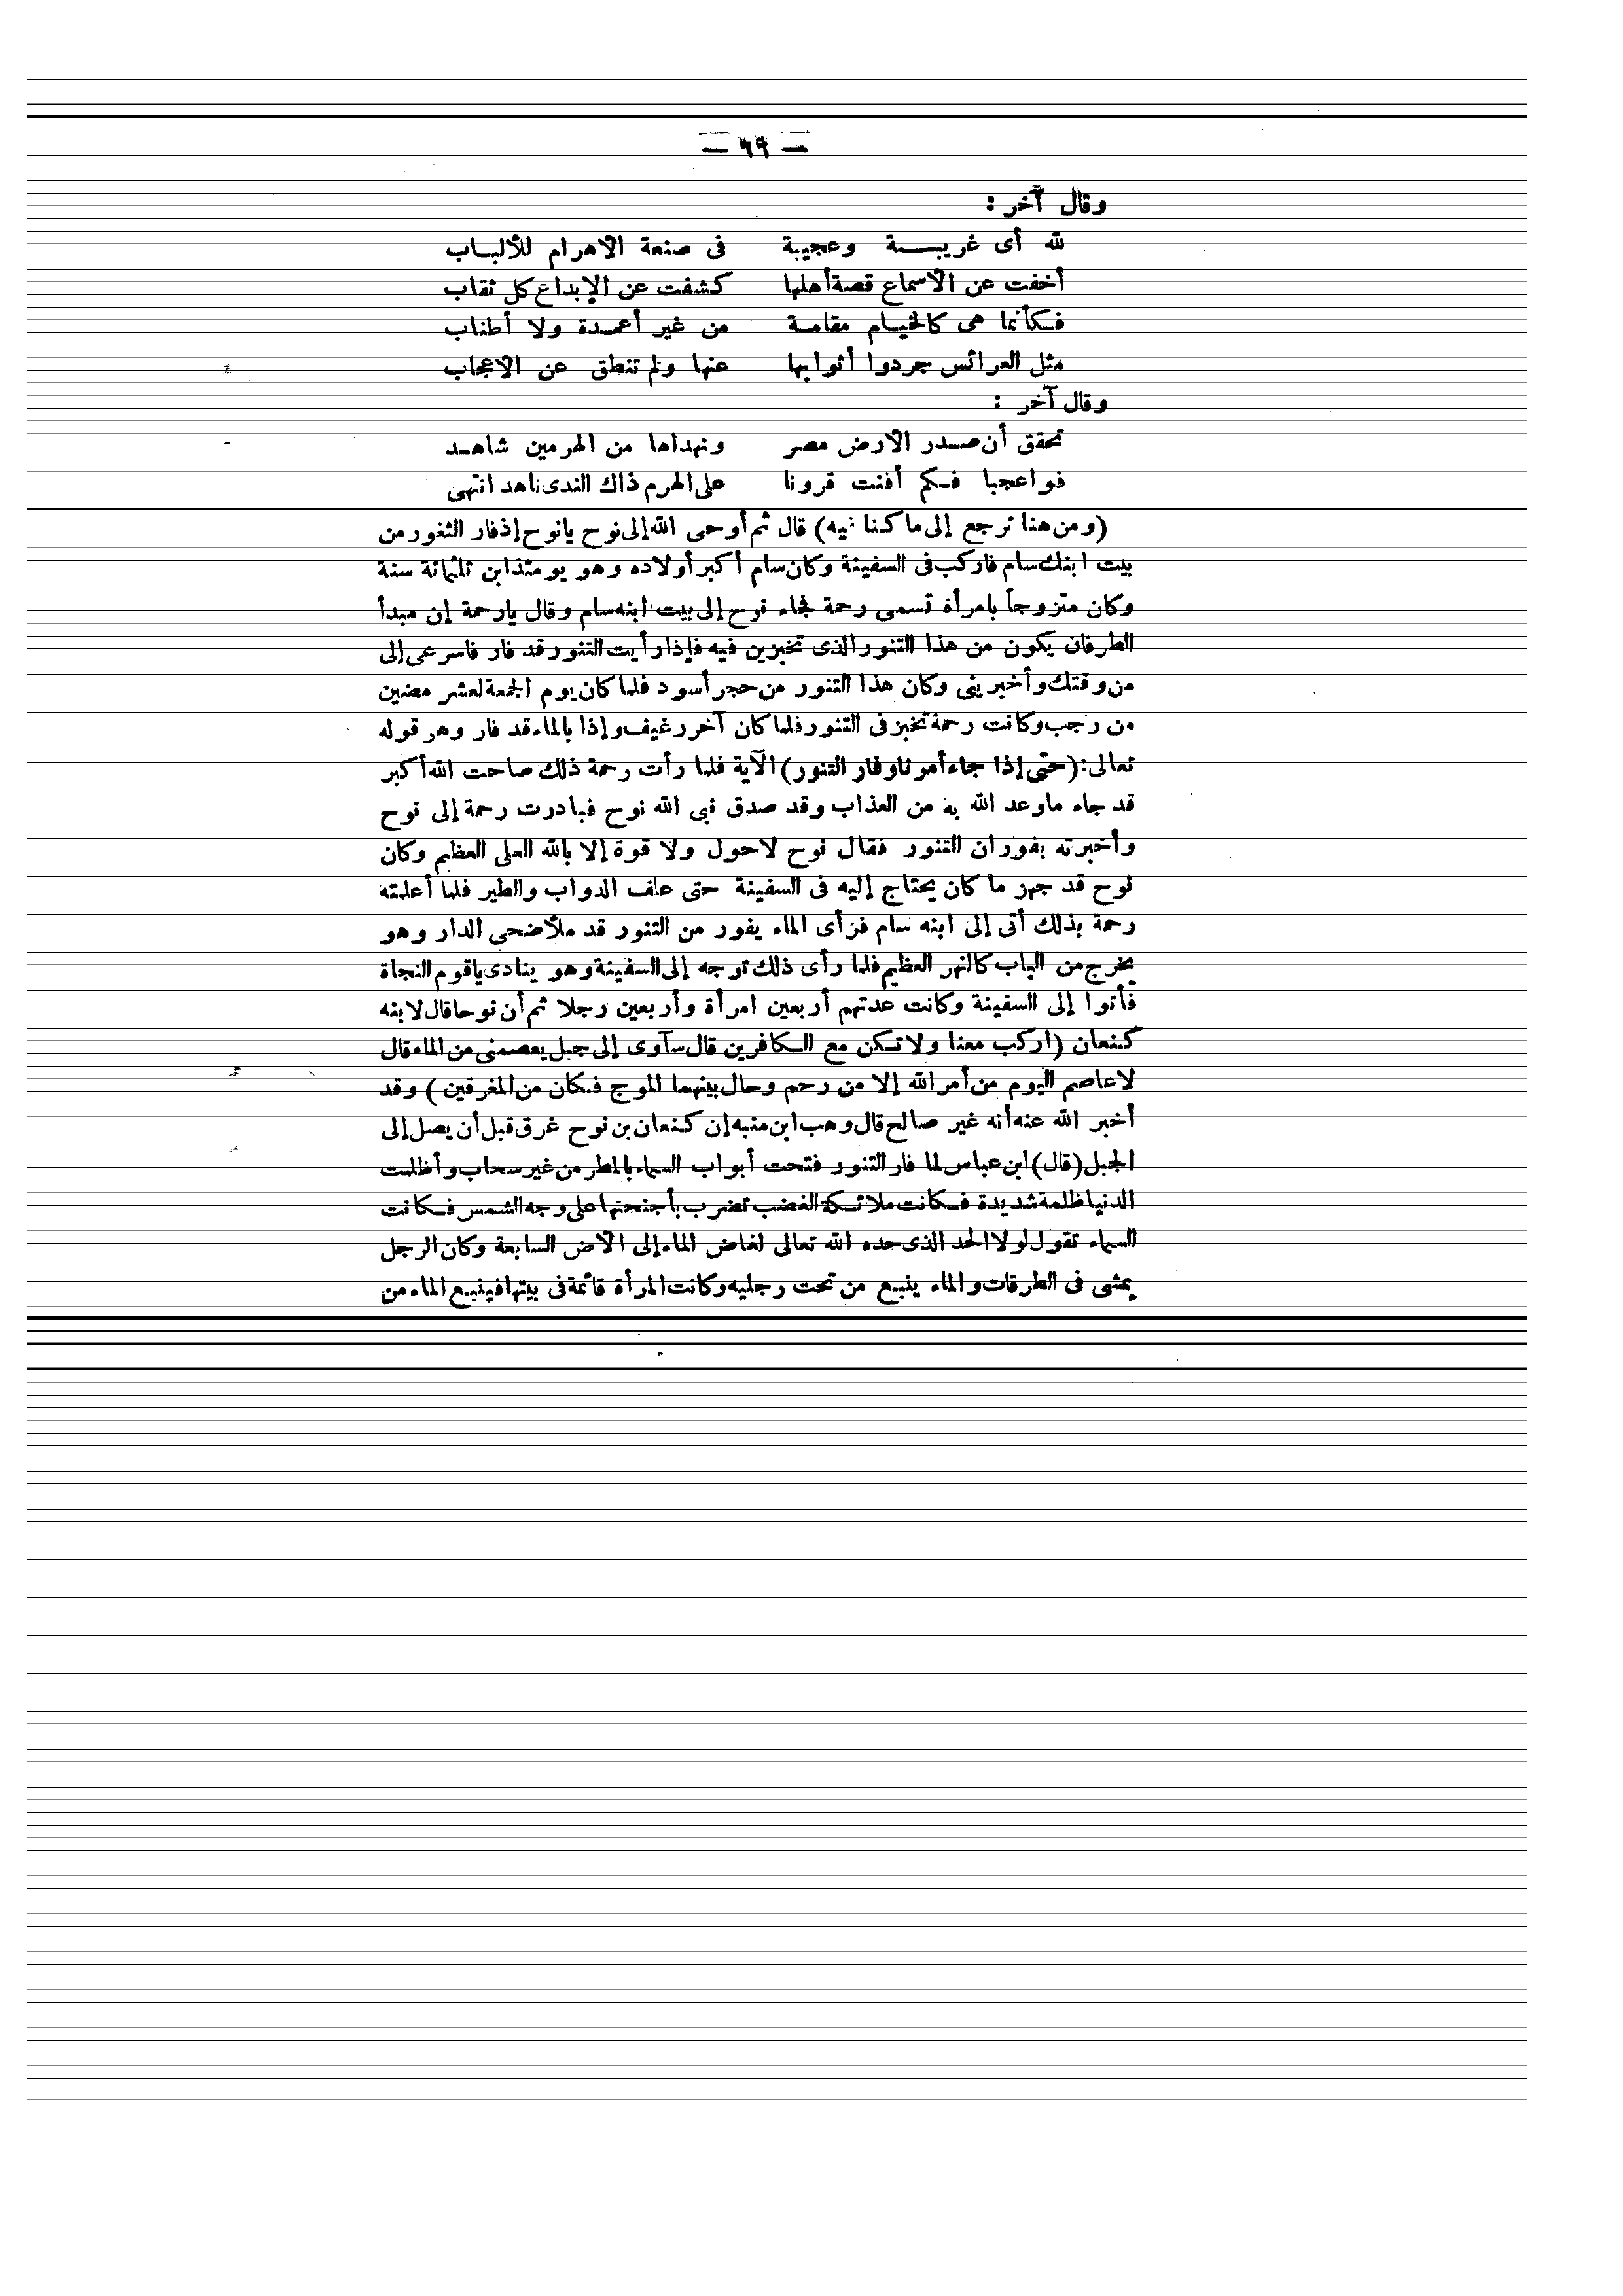 — ٦٩ —
وقال آخر :
لله أى غريبة وعجيبة فى صنعة الاهرام للألباب
أخفت عن الاسماع قصة أهلها كشفت عن الإبداع كل ثقاب
فكأنما هى كالخيام مقامة من غير أعمدة ولا أطناب
مثل العرائس جردوا أثوابها عنها ولم تنطق عن الاعجاب
وقال آخر :
تحقق أن صدر الارض مصر ونهداها من الهرمين شاهد
فواعجبا فكم أفنت قرونا على الهرم ذاك الندى ناهد انتهى
(ومن هنا نرجع إلى ما كنا فيه) قال ثم أوحى الله إلى نوح يانوح إذفار التنور من
بيت ابنك سام فاركب فى السفينة وكان سام أكبر أولاده وهو يومئذ ابن ثلثمائة سنة
وكان متزوجاً بامرأة تسمى رحمة فجاء نوح إلى بيت ابنه سام وقال يارحمة إن مبدأ
الطرفان يكون من هذا التنور الذى تخبزين فيه فإذا رأيت التنور قد فار فاسرعى إلى
من وقتك وأخبرينى وكان هذا التنور من حجر أسود فلما كان يوم الجمعة لعشر مضين
من رجب وكانت رحمة تخبز فى التنور فلما كان آخر رغيف وإذا بالماء قد فار وهر قوله
تعالى: (حتى إذا جاء أمرنا وفار التنور) الآية فلما رأت رحمة ذلك صاحت الله أكبر
قد جاء ماوعد الله به من العذاب وقد صدق نبى الله نوح فبادرت رحمة إلى نوح
وأخبرته بفوران التنور فقال نوح لاحول ولا قوة إلا بالله العلى العظيم وكان
نوح قد جهز ما كان يحتاج إليه فى السفينة حتى علف الدواب والطير فلما أعلمته
رحمة بذلك أتى إلى ابنه سام فرأى الماء يفور من التنور قد ملأ ضحى الدار وهو
يخرج من الباب كالنهر العظيم فلما رأى ذلك توجه إلى السفينة وهو ينادى ياقوم النجاة
فأتوا إلى السفينة وكانت عدتهم أربعين امرأة وأربعين رجلا ثم أن نوحا قال لابنه
كنعان (اركب معنا ولا تكن مع الكافرين قال سآوى إلى جبل يعصمنى من الماء قال
لاعاصم اليوم من أمر الله إلا من رحم وحال بينهما الموج فكان من المغرقين) وقد
أخبر الله عنه أنه غير صالح قال وهب ابن منبه إن كنعان بن نوح غرق قبل أن يصل إلى
الجبل (قال) ابن عباس لما فار التنور فتحت أبواب السماء بالمطر من غير سحاب وأظلمت
الدنيا ظلمة شديدة فكانت ملائكة الغضب تضرب بأجنحتها على وجه الشمس فكانت
السماء تقول لولا الحد الذى حده الله تعالى لغاض الماء إلى الأض السابعة وكان الرجل
يمشى فى الطرقات والماء ينبع من تحت رجليه وكانت المرأة قائمة فى بيتها فينبع الماء من